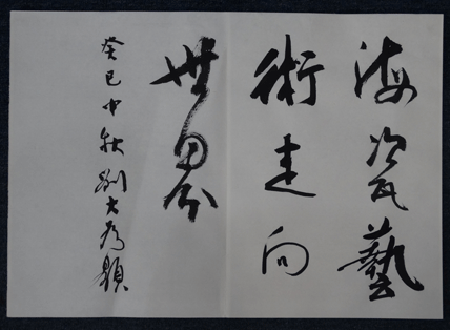 海瓷藝
術走向
世界
癸巳中秋劉大為題